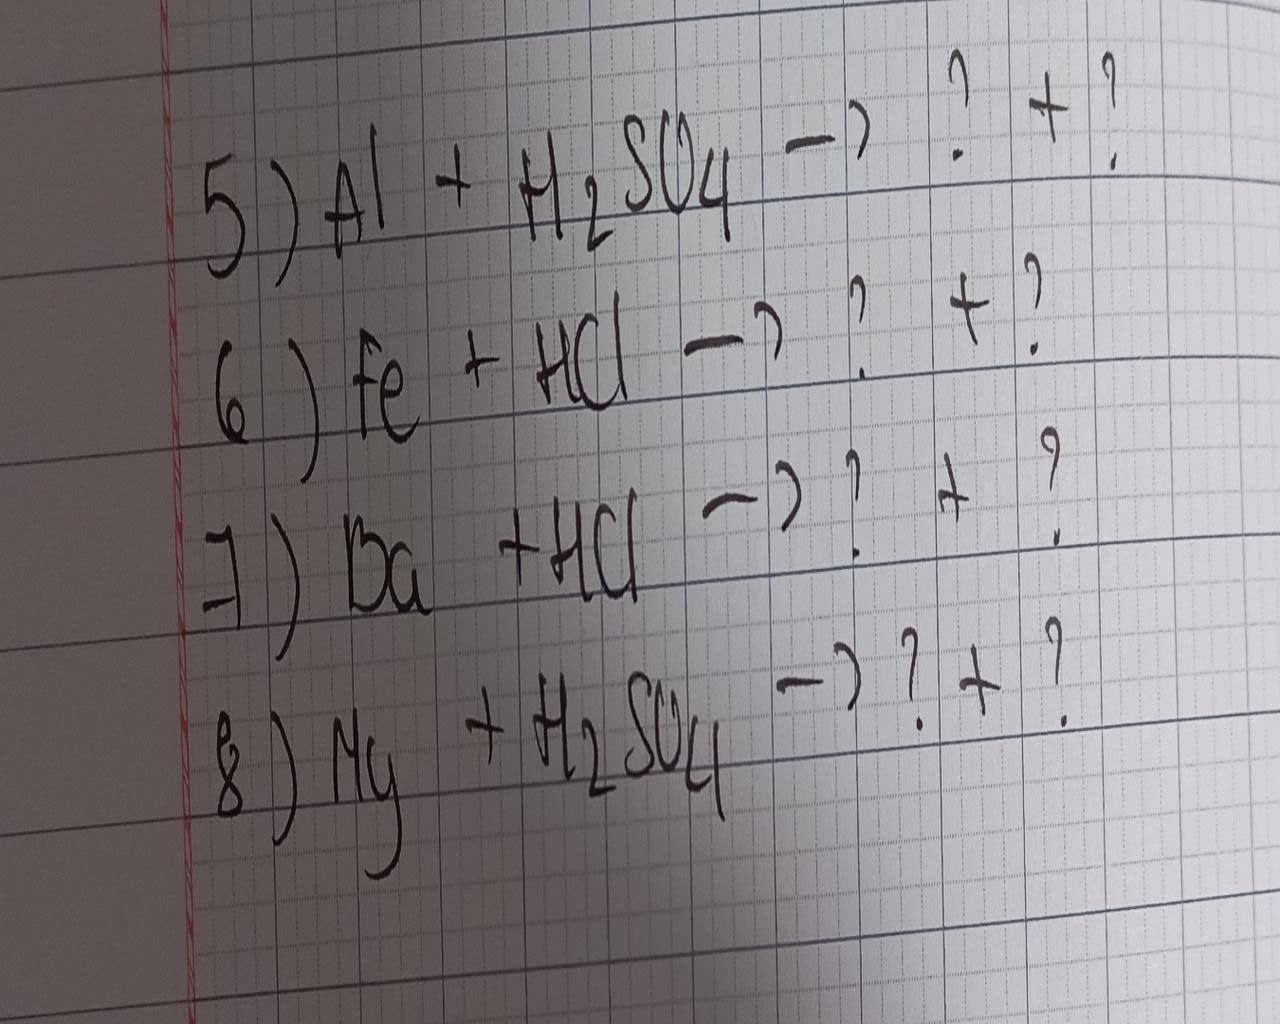 5) Al + H2SO4 -> ? + ?
6) Fe + HCl -> ? + ?
7) Ba + HCl -> ? + ?
8) Mg + H2SO4 -> ? + ?